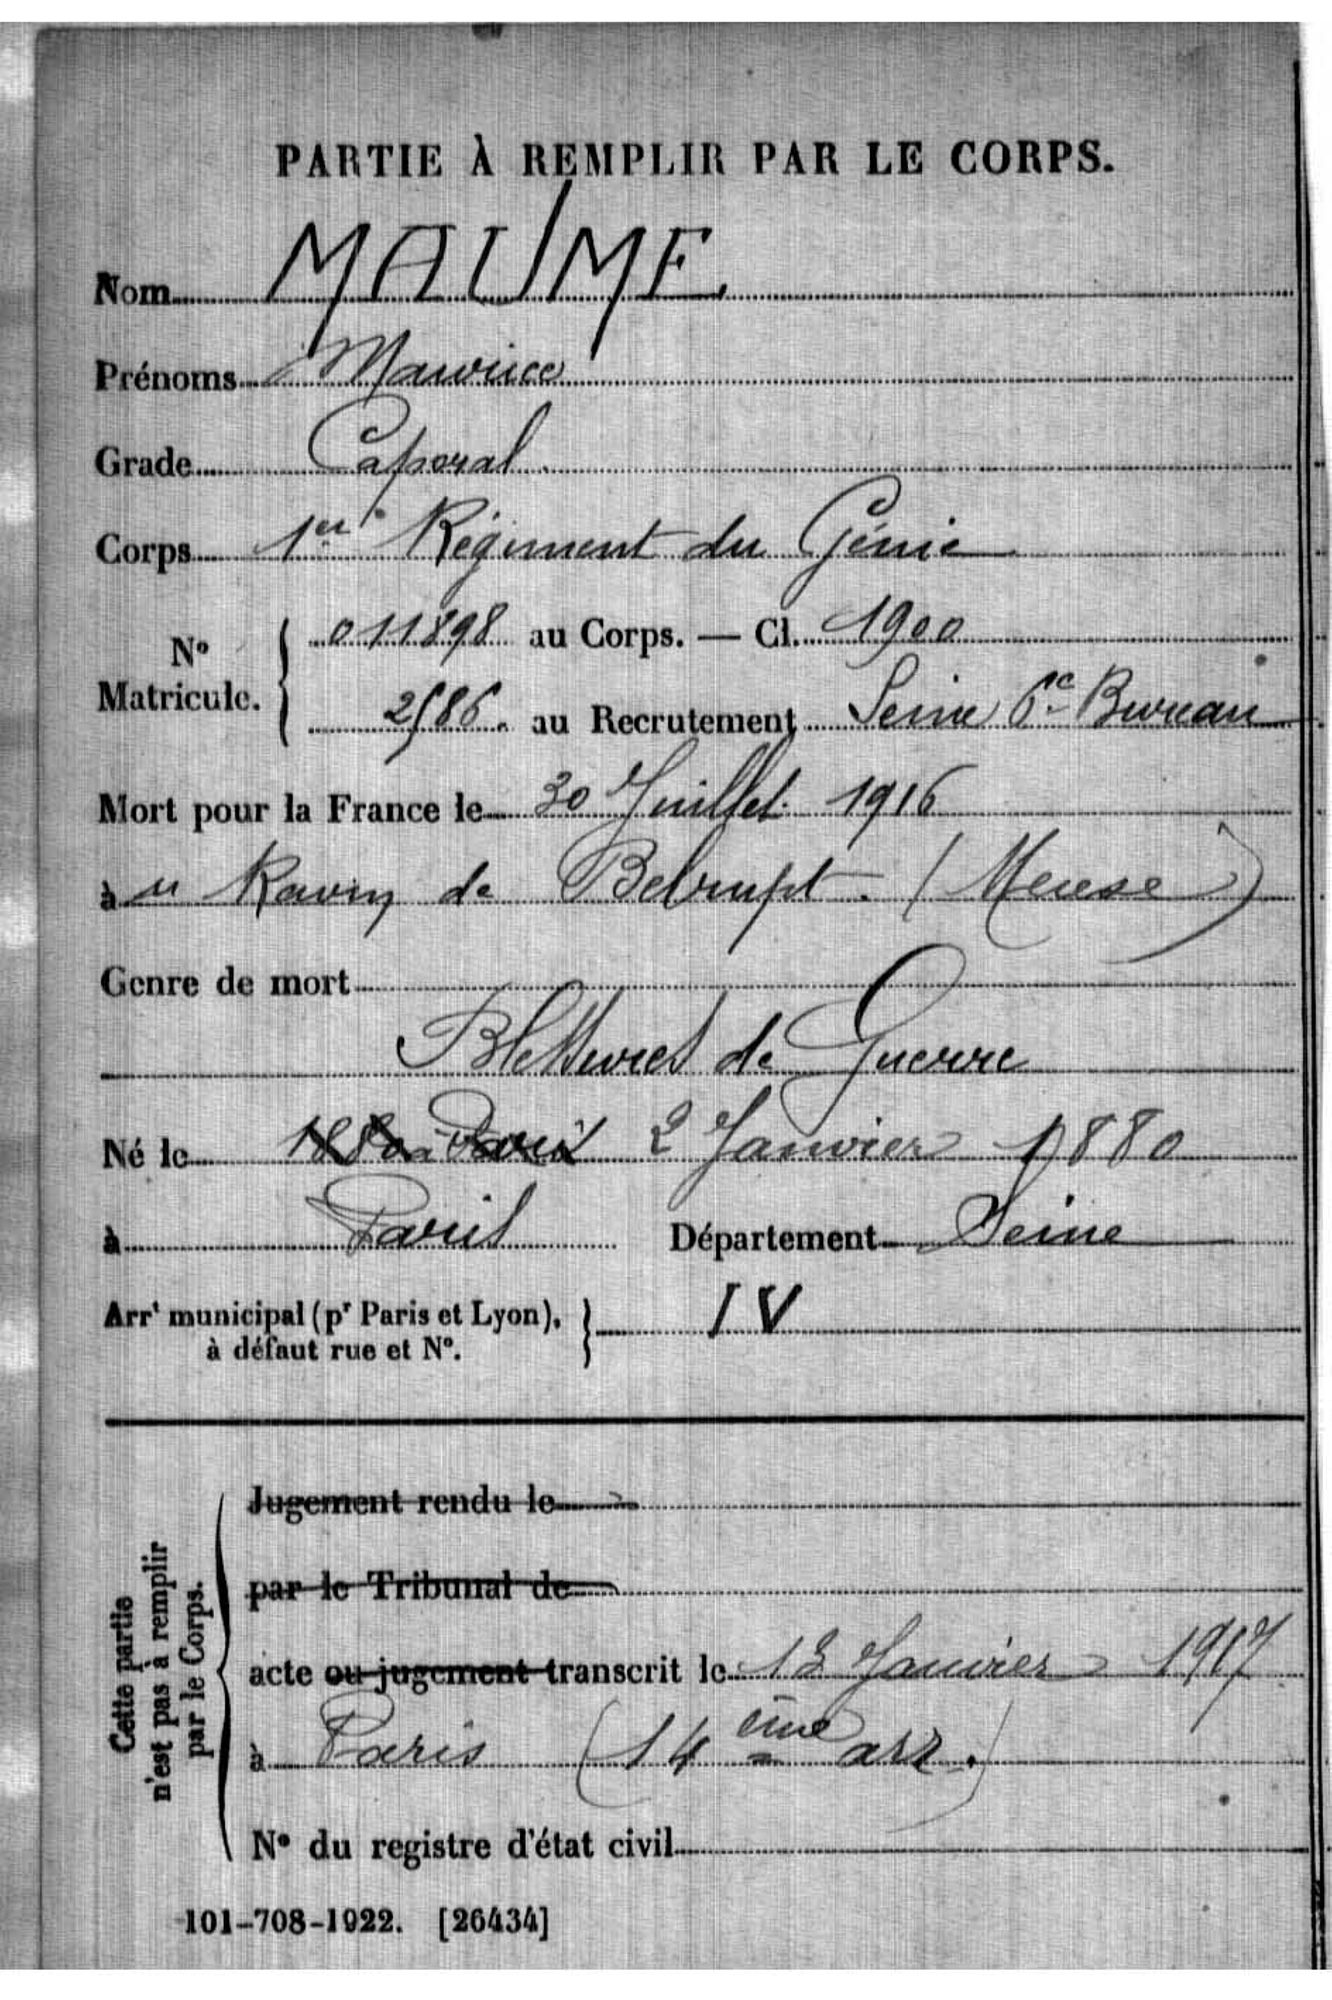 PARTIE À REMPLIR PAR LE CORPS.
Nom MAUME
Prénoms Maurice
Grade Caporal
Corps 1er Régiment du Génie
N° Matricule. 011898 au Corps. — Cl. 1900
2586. au Recrutement Seine 6e Bureau
Mort pour la France le 30 Juillet 1916
à u Ravin de Belrupt. (Meuse)
Genre de mort
Blessures de Guerre
Né le 1880 à Paris 2 Janvier 1880
à Paris Département Seine
Arrt municipal (pr Paris et Lyon), IV
à défaut rue et N°.
Cette partie n'est pas à remplir par le Corps.
Jugement rendu le
par le Tribunal de
acte ou jugement transcrit le 13 Janvier 1917
à Paris (14 ème arr.)
N° du registre d'état civil
101-708-1922. [26434]